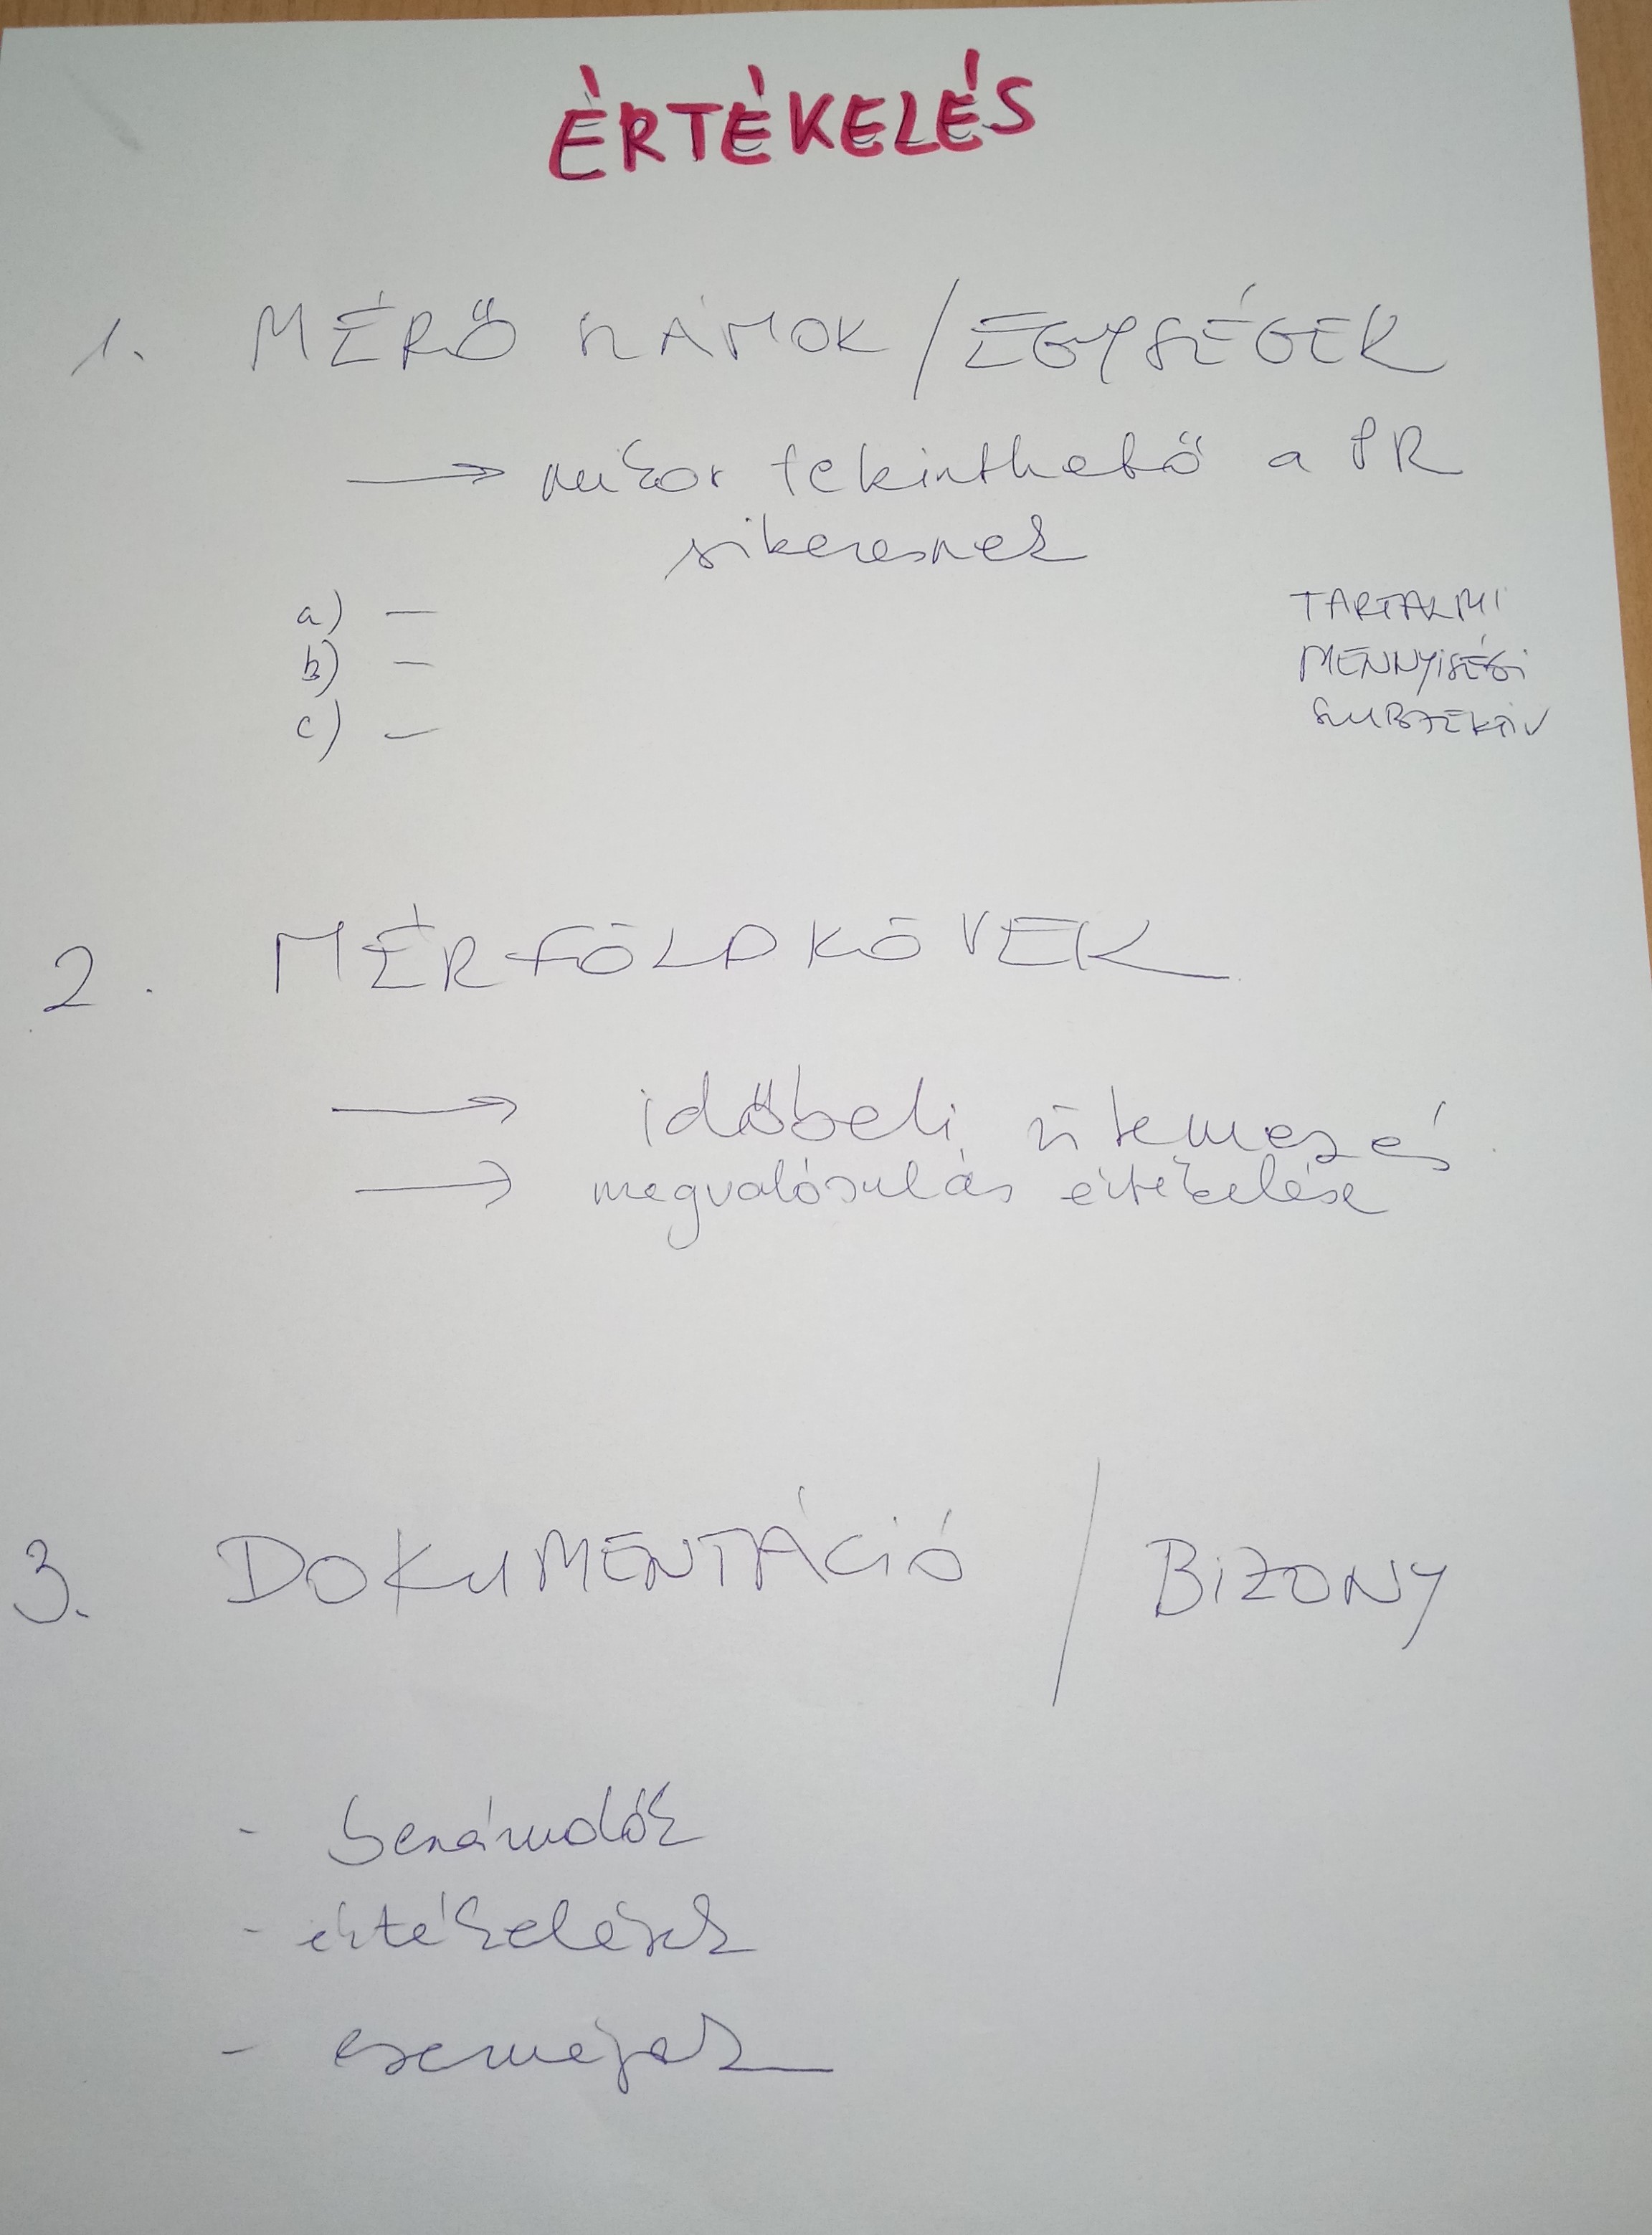 ÉRTÉKELÉS
1. MÉRŐ SZÁMOK / EGYSÉGEK
→ mikor tekinthető a PR
sikeresnek
a) — TARTALMI
b) — MENNYISÉGI
c) — SZUBJEKTÍV
2. MÉRFÖLDKÖVEK
→ időbeli ütemezés
→ megvalósulás értékelése
3. DOKUMENTÁCIÓ / BIZONY
- beszámolók
- értékelések
- események